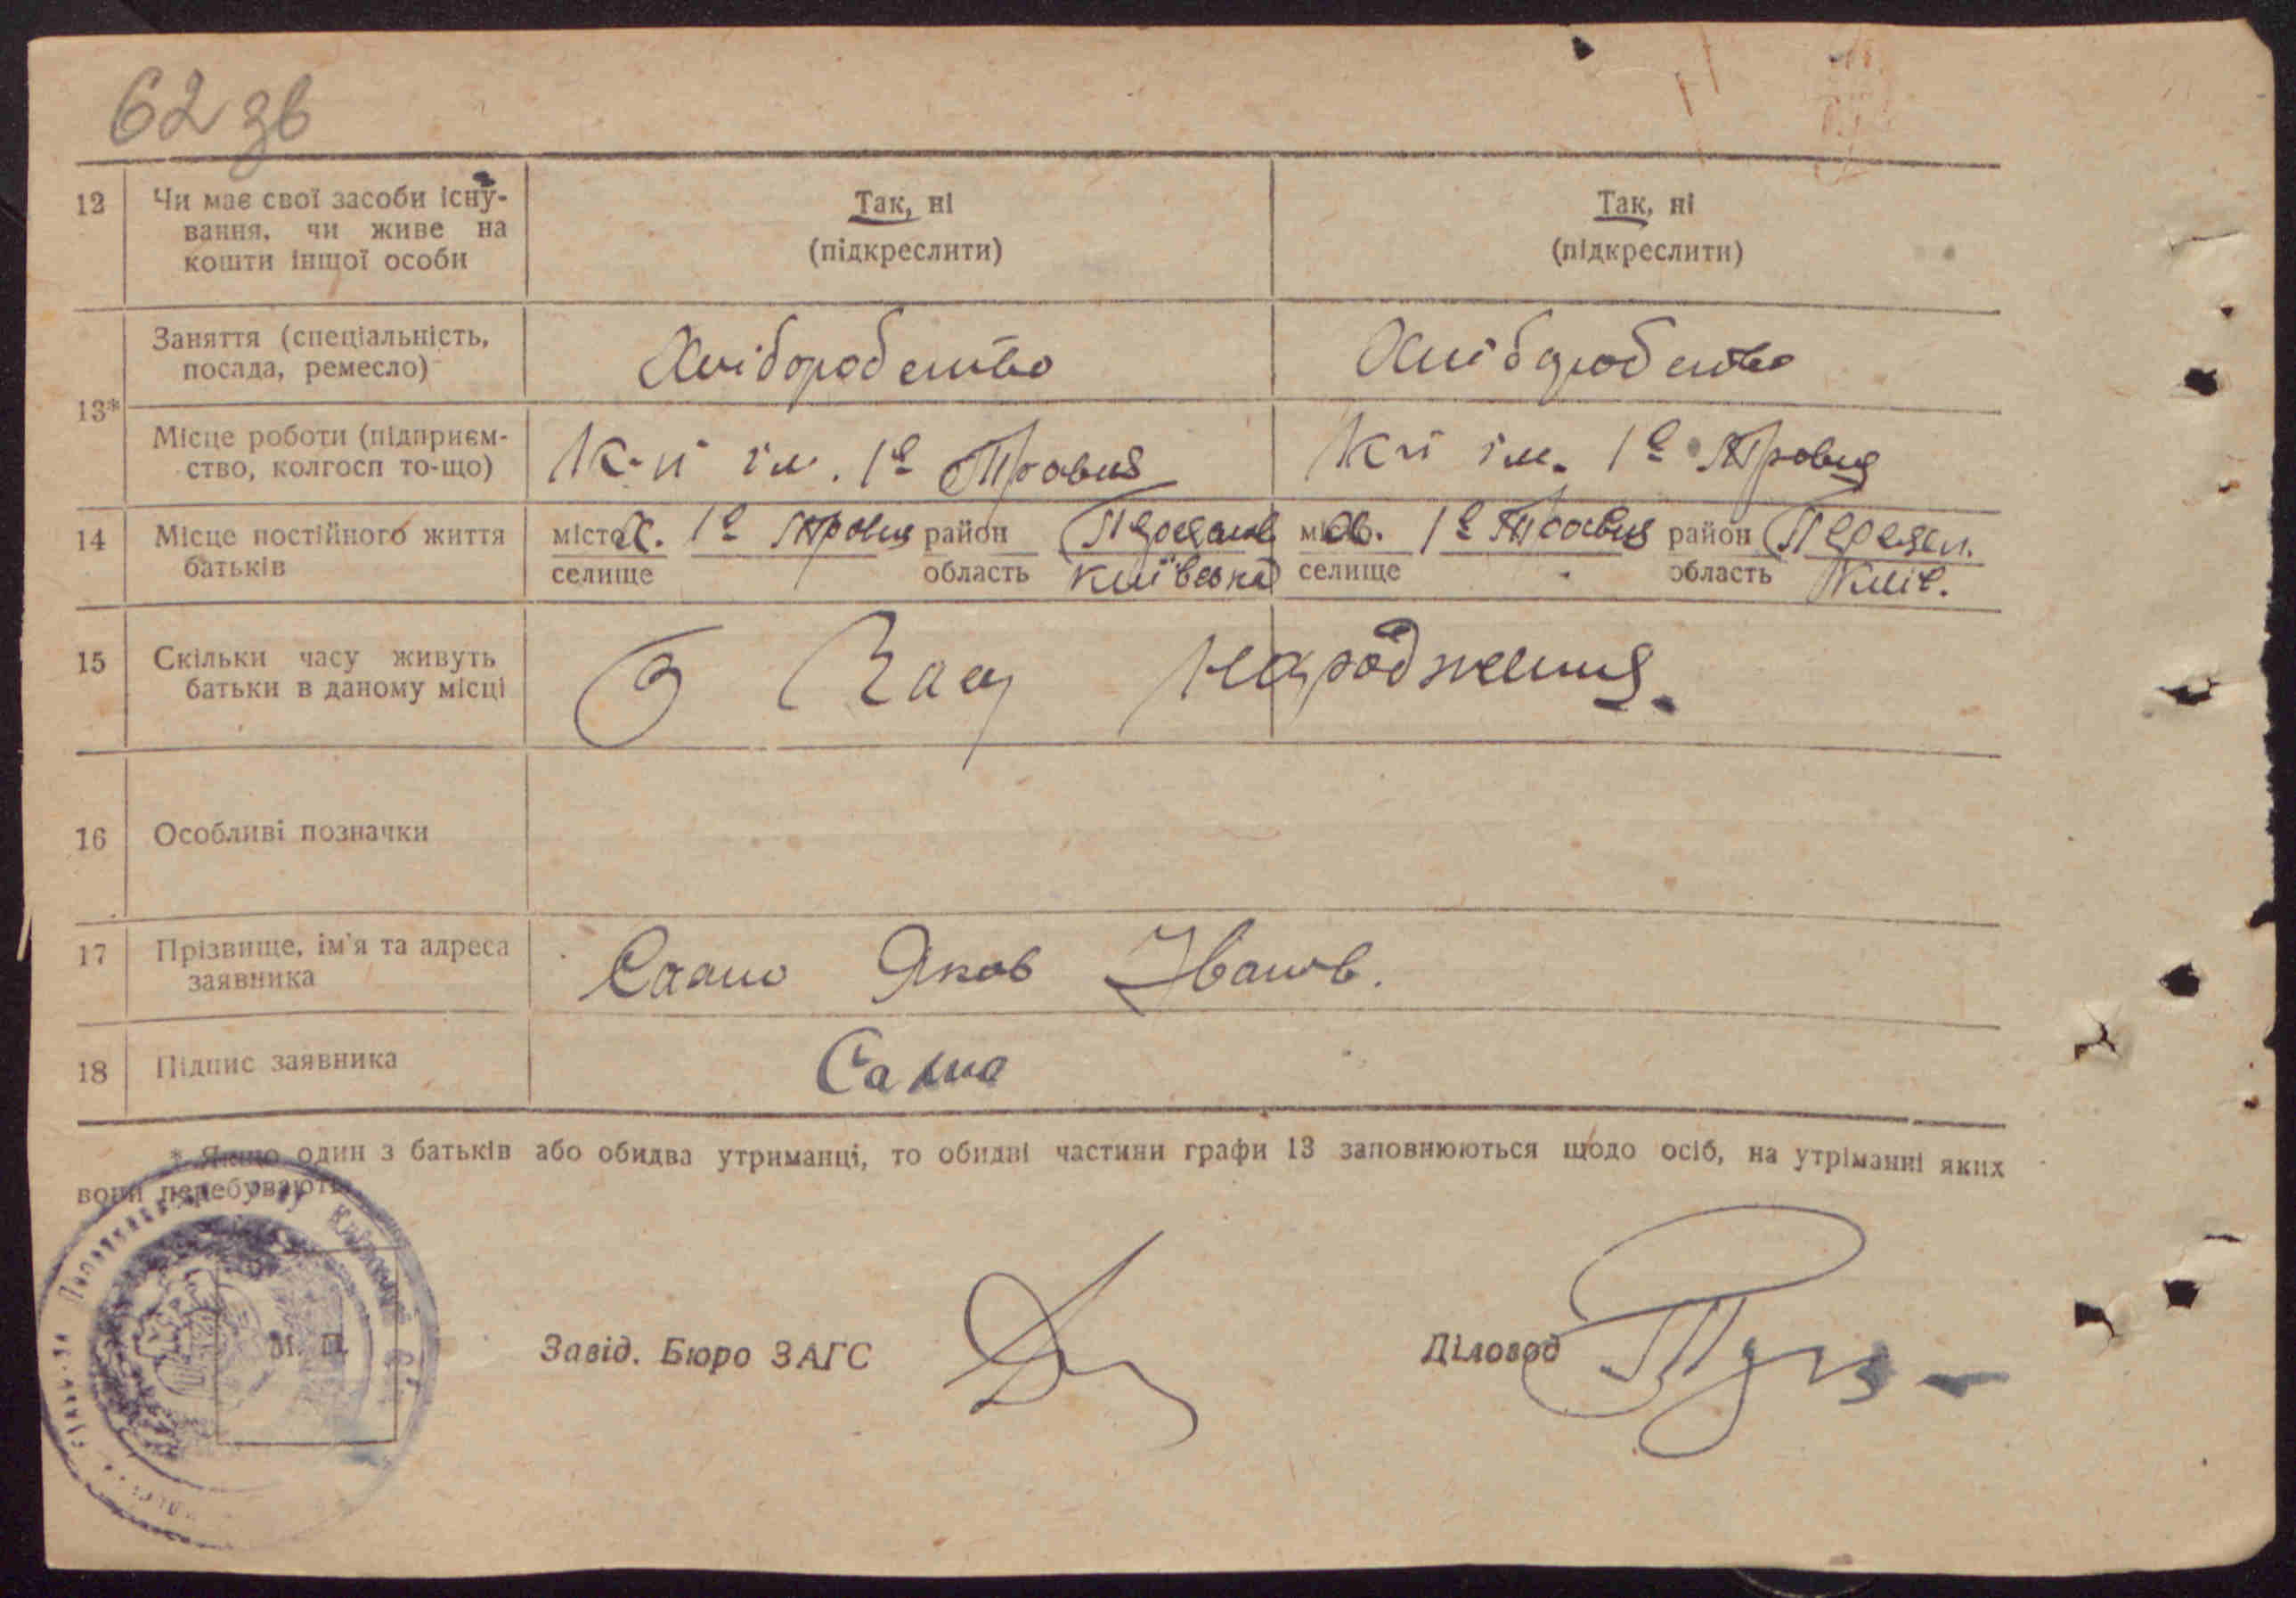 62 зв
12 Чи має свої засоби існу-
вання, чи живе на
кошти іншої особи
Так, ні
(підкреслити)
Так, ні
(підкреслити)
13*
Заняття (спеціальність,
посада, ремесло)
Хліборобство
Хліборобство
Місце роботи (підприєм-
ство, колгосп то-що)
К-п ім. 1е Травня
К-п ім. 1е Травня
14 Місце постійного життя
батьків
місто с. 1е Травня район
селище область Київська
місто с. 1е Травня район Переясл.
селище область Київ.
15 Скільки часу живуть
батьки в даному місці
З дня народження.
16 Особливі позначки
17 Прізвище, ім'я та адреса
заявника
Сало Яков Іванов.
18 Підпис заявника
Сало
* Якщо один з батьків або обидва утриманці, то обидві частини графи 13 заповнюються щодо осіб, на утріманні яких
вони перебувають.
М. П.
Завід. Бюро ЗАГС
Діловод